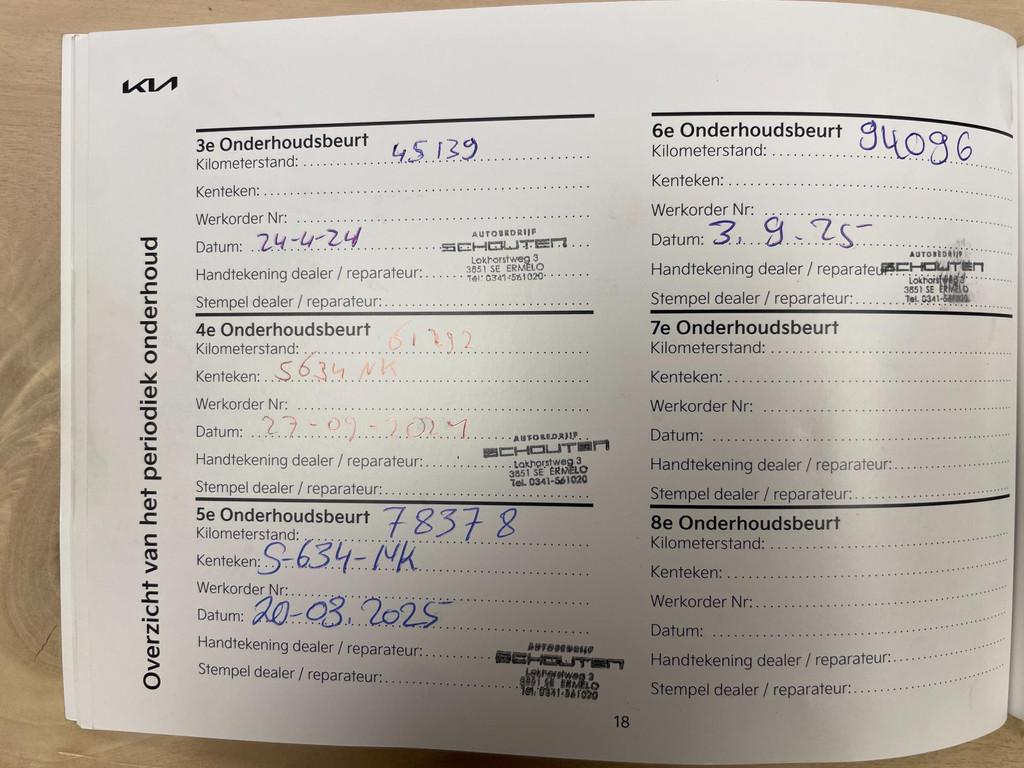 KIA
Overzicht van het periodiek onderhoud
3e Onderhoudsbeurt
Kilometerstand: 45139
Kenteken:
Werkorder Nr:
Datum: 24-4-24
Handtekening dealer / reparateur:
Stempel dealer / reparateur:
AUTOBEDRIJF
SCHOUTEN
Lokhorstweg 3
3851 SE ERMELO
Tel: 0341-561020
4e Onderhoudsbeurt
Kilometerstand: 61292
Kenteken: S634 NK
Werkorder Nr:
Datum: 27-09-2024
Handtekening dealer / reparateur:
Stempel dealer / reparateur:
AUTOBEDRIJF
SCHOUTEN
Lokhorstweg 3
3851 SE ERMELO
Tel. 0341-561020
5e Onderhoudsbeurt
Kilometerstand: 78378
Kenteken: S-634-NK
Werkorder Nr:
Datum: 20-03.2025
Handtekening dealer / reparateur:
Stempel dealer / reparateur:
AUTOBEDRIJF
SCHOUTEN
Lokhorstweg 3
3851 SE ERMELO
Tel. 0341-561020
6e Onderhoudsbeurt
Kilometerstand: 94096
Kenteken:
Werkorder Nr:
Datum: 3.9.25
Handtekening dealer / reparateur
Stempel dealer / reparateur:
AUTOBEDRIJF
SCHOUTEN
Lokhorstweg 3
3851 SE ERMELO
Tel. 0341-561020
7e Onderhoudsbeurt
Kilometerstand:
Kenteken:
Werkorder Nr:
Datum:
Handtekening dealer / reparateur:
Stempel dealer / reparateur:
8e Onderhoudsbeurt
Kilometerstand:
Kenteken:
Werkorder Nr:
Datum:
Handtekening dealer / reparateur:
Stempel dealer / reparateur:
18